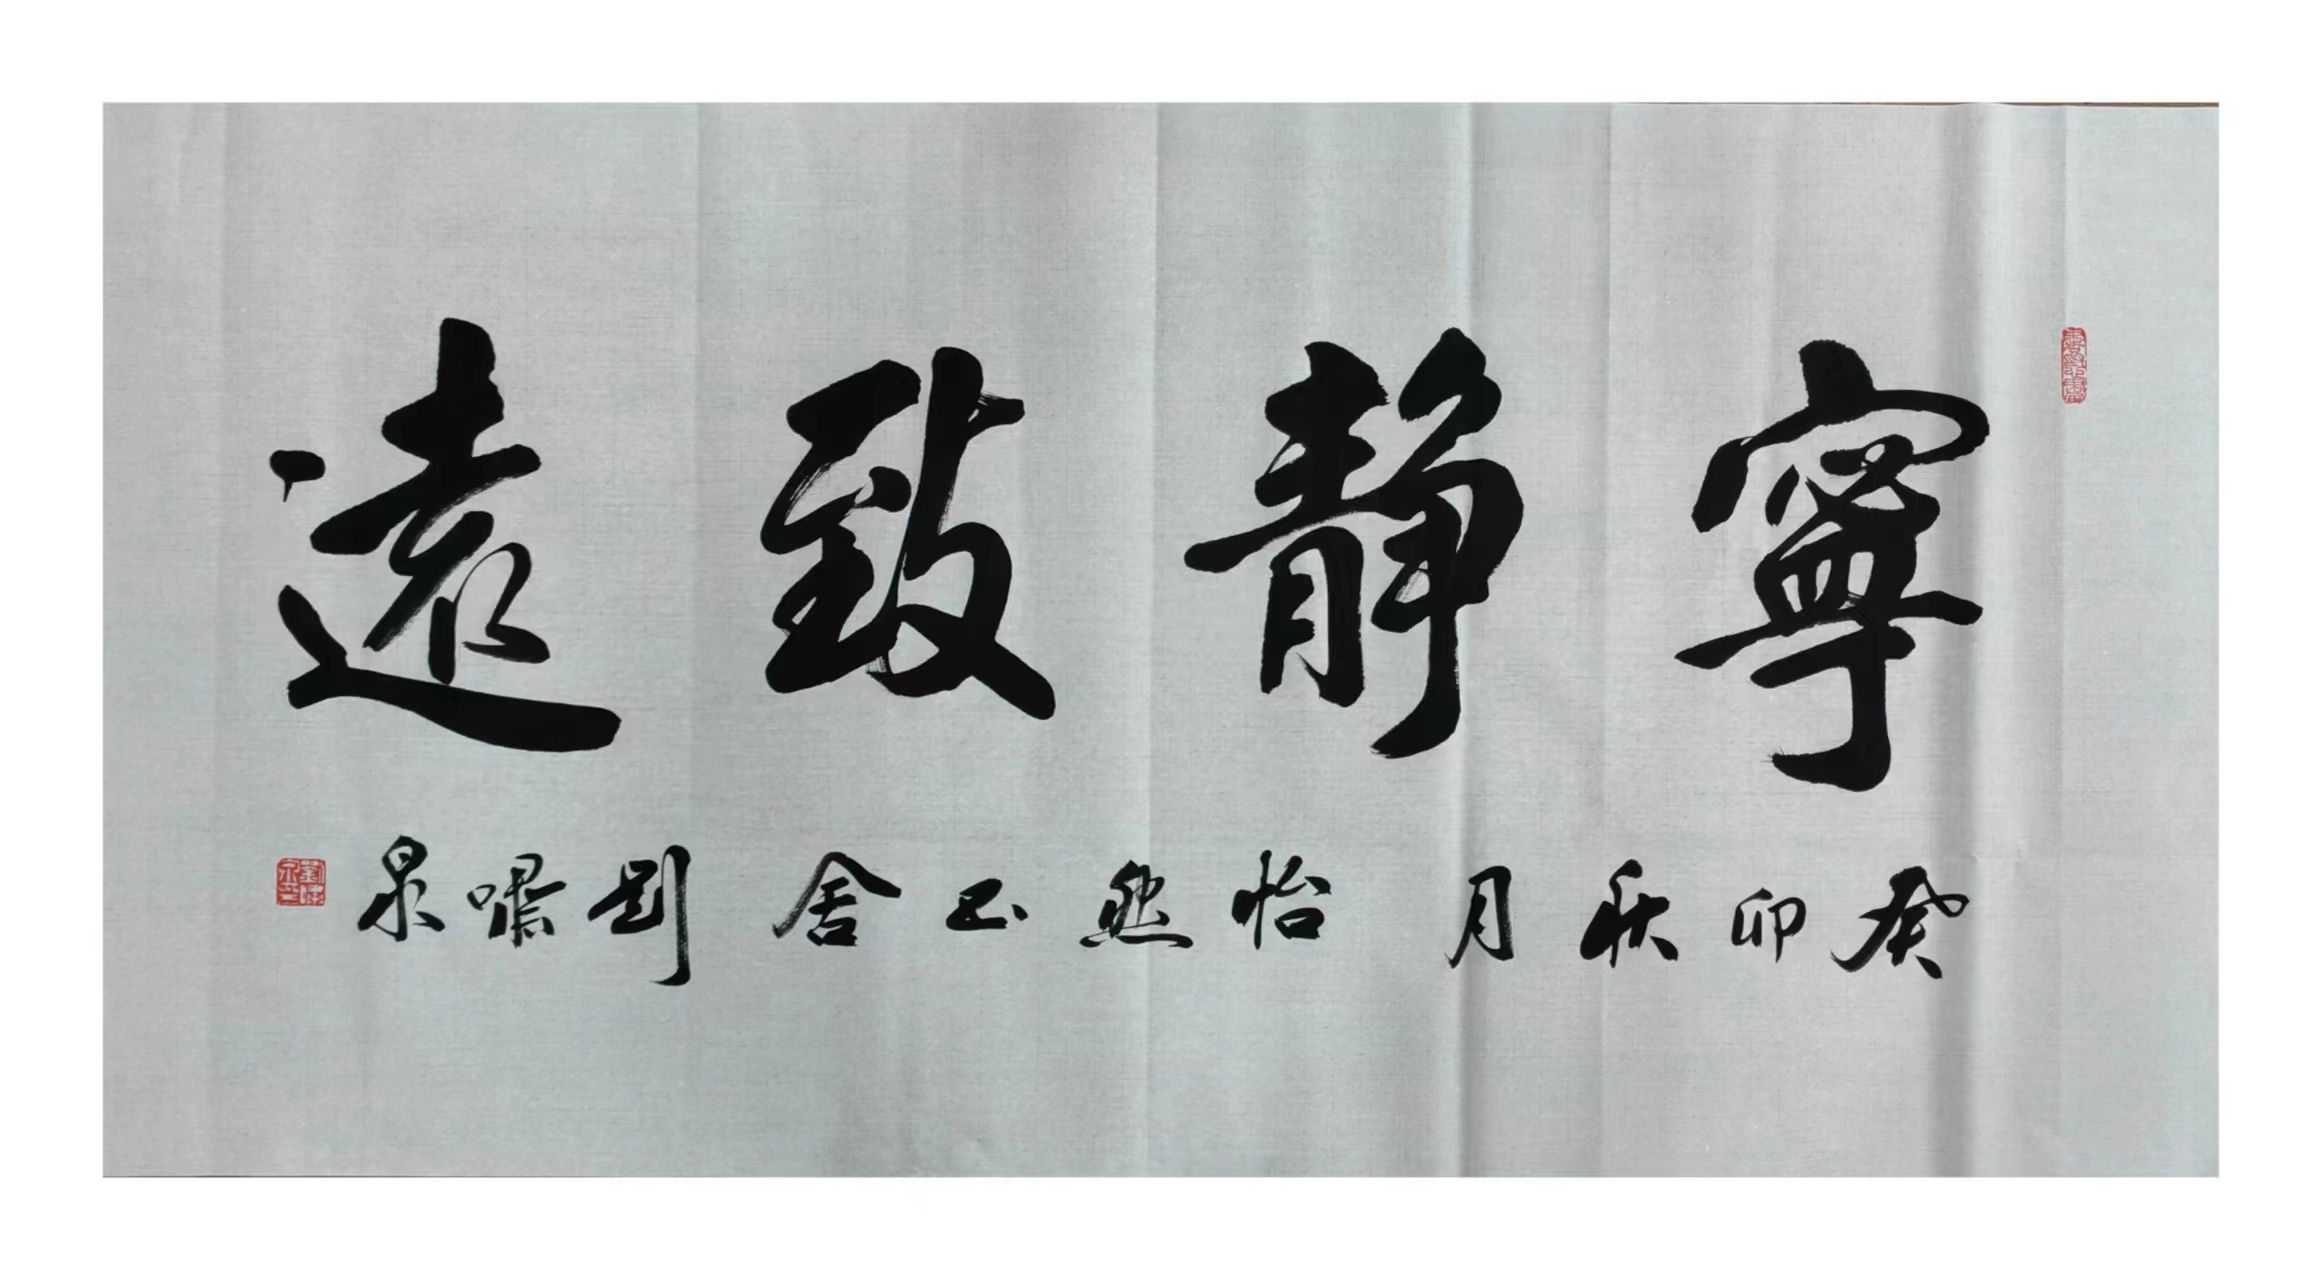 寧靜致遠
癸卯秋月 怡然正舍 劉嘯泉